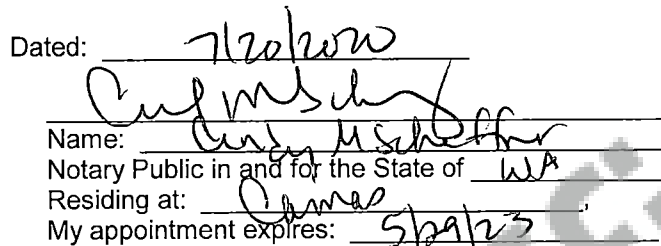 Dated: 7/20/2020
Name: Cindy M Scheffner
Notary Public in and for the State of WA
Residing at: Camas
My appointment expires: 5/29/23